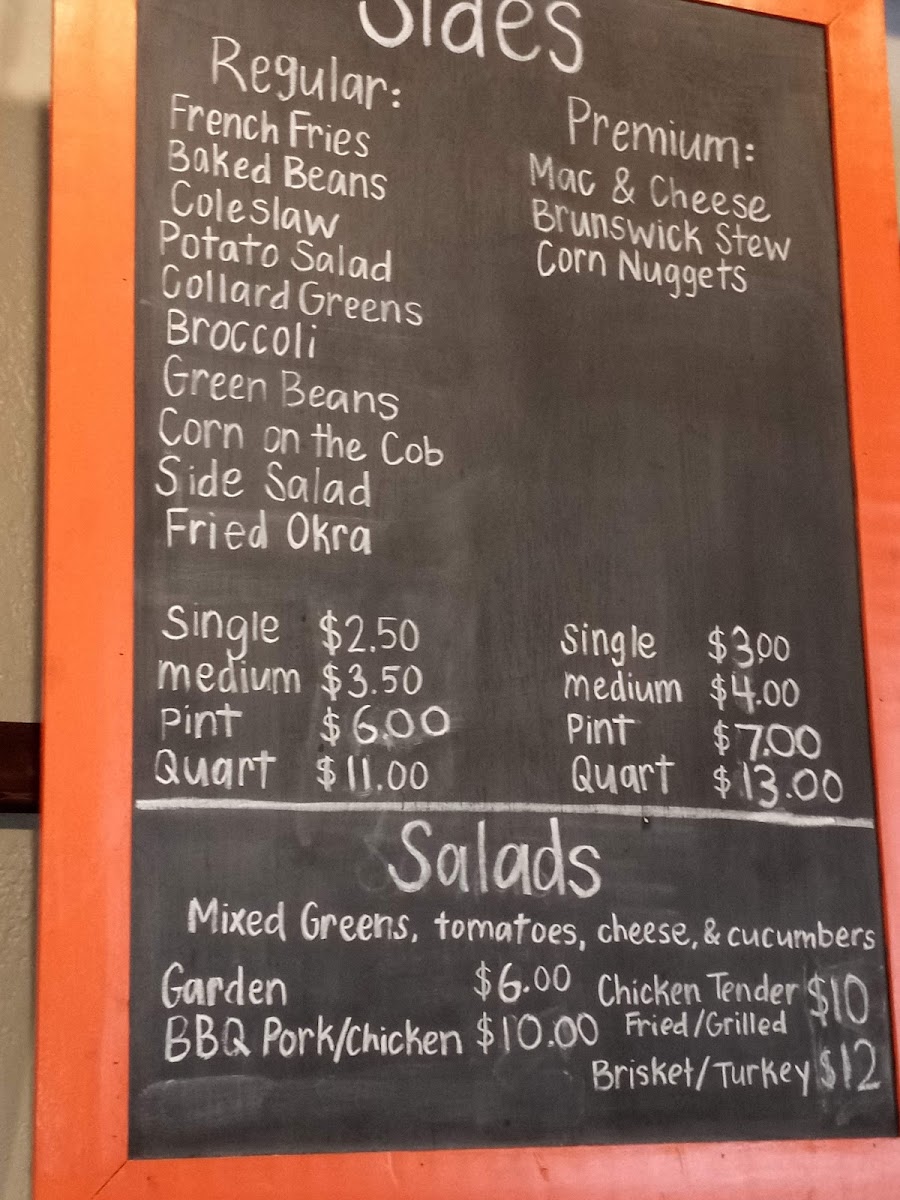 Sides
Regular:
French Fries
Baked Beans
Coleslaw
Potato Salad
Collard Greens
Broccoli
Green Beans
Corn on the Cob
Side Salad
Fried Okra
Single $2.50
medium $3.50
Pint $6.00
Quart $11.00
Premium:
Mac & Cheese
Brunswick Stew
Corn Nuggets
Single $3.00
medium $4.00
Pint $7.00
Quart $13.00
Salads
Mixed Greens, tomatoes, cheese, & cucumbers
Garden $6.00
BBQ Pork/Chicken $10.00
Chicken Tender $10
Fried/Grilled
Brisket/Turkey $12